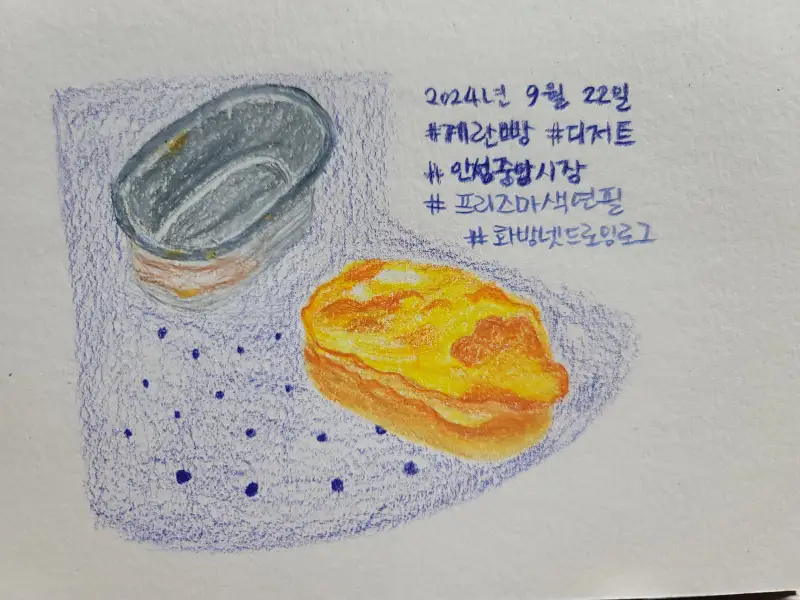 2024년 9월 22일
#계란빵 #디저트
# 안성중앙시장
# 프리즈마색연필
# 화방넷드로잉로그